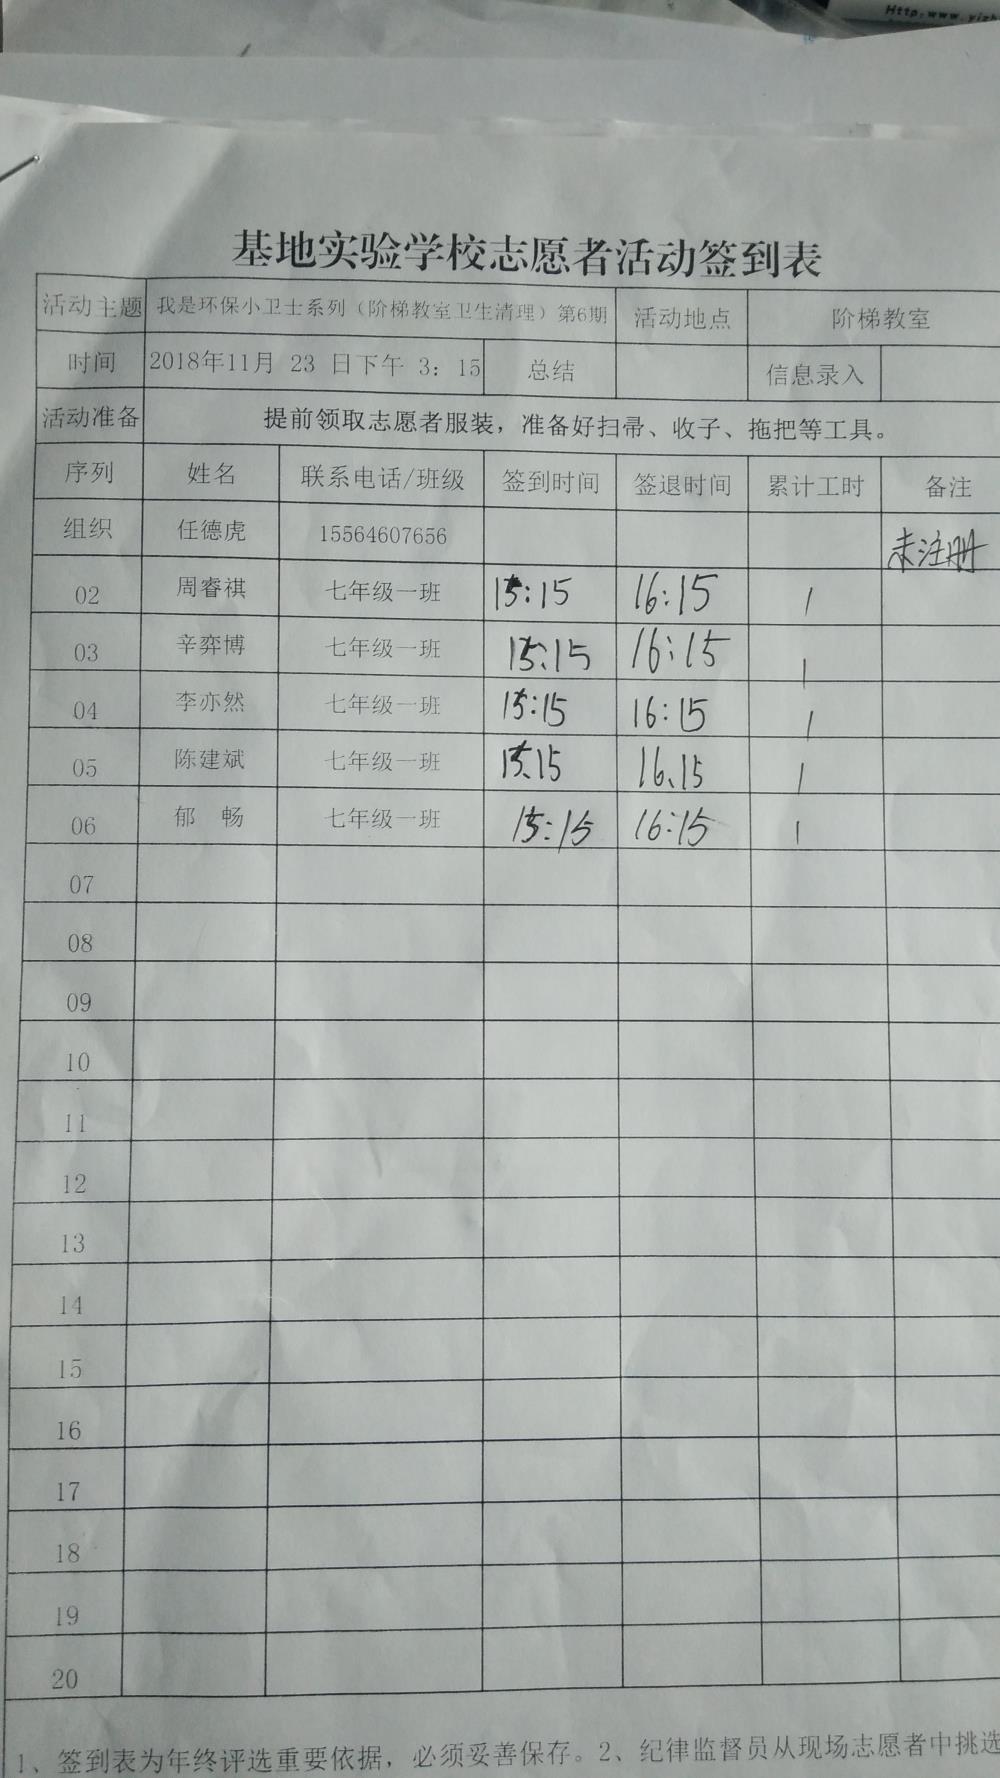 Http:www.yizh
基地实验学校志愿者活动签到表
活动主题 我是环保小卫士系列（阶梯教室卫生清理）第6期 活动地点 阶梯教室
时间 2018年11月 23 日下午 3：15 总结 信息录入
活动准备 提前领取志愿者服装，准备好扫帚、收子、拖把等工具。
序列 姓名 联系电话/班级 签到时间 签退时间 累计工时 备注
组织 任德虎 15564607656 未注册
02 周睿祺 七年级一班 15:15 16:15 1
03 辛弈博 七年级一班 15:15 16:15 1
04 李亦然 七年级一班 15:15 16:15 1
05 陈建斌 七年级一班 15.15 16.15 1
06 郁 畅 七年级一班 15:15 16:15 1
07
08
09
10
11
12
13
14
15
16
17
18
19
20
1、签到表为年终评选重要依据，必须妥善保存。2、纪律监督员从现场志愿者中挑选